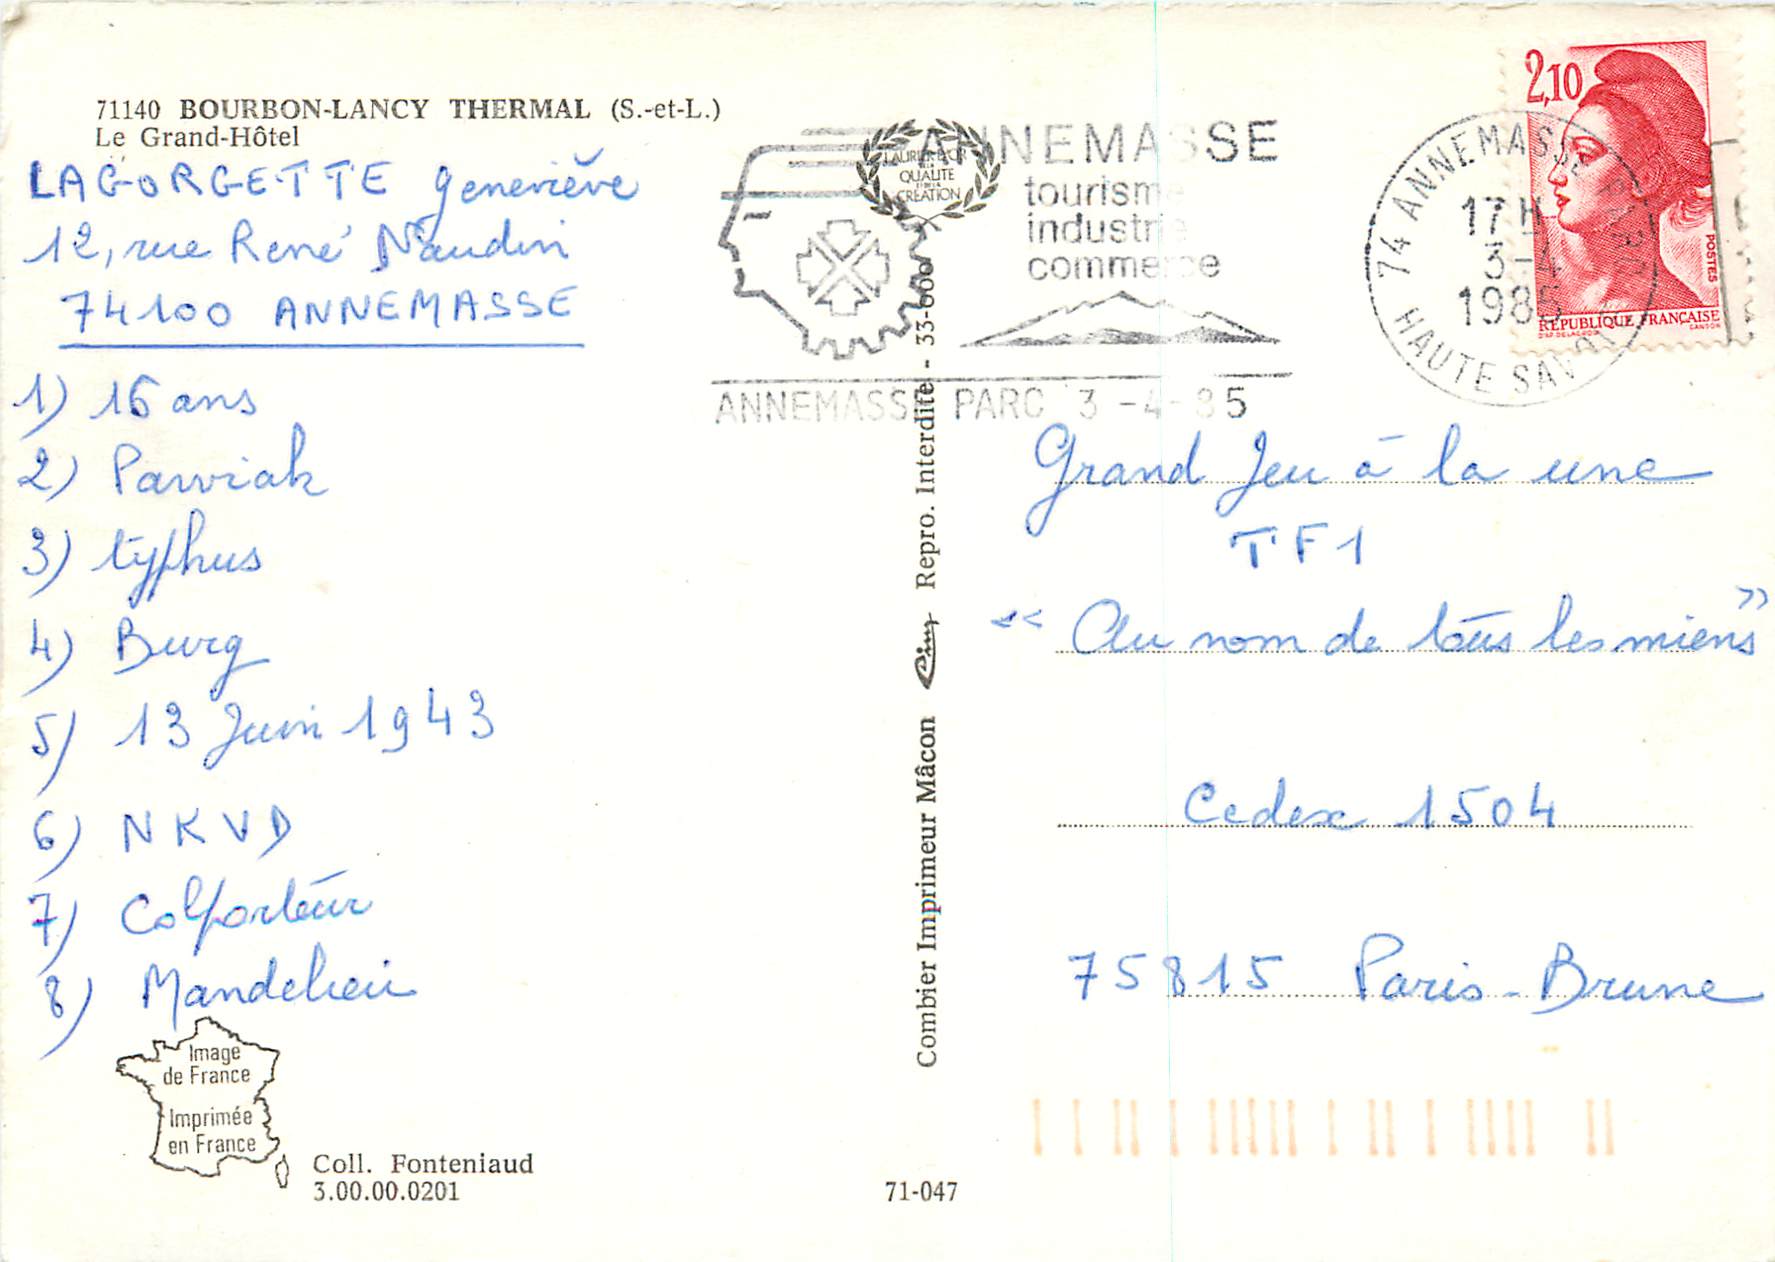 71140 BOURBON-LANCY THERMAL (S.-et-L.)
Le Grand-Hôtel
LAGORGETTE Geneviève
12, rue René Naudin
74100 ANNEMASSE
1) 16 ans
2) Pawiak
3) typhus
4) Burg
5) 13 Juin 1943
6) NKVD
7) Colporteur
8) Mandelieu
Image
de France
Imprimée
en France
Coll. Fonteniaud
3.00.00.0201
71-047
Combier Imprimeur Mâcon Cim Repro. Interdite - 33-600
LAURIER D'OR
DE LA
QUALITÉ
ET DE LA
CRÉATION
ANNEMASSE
tourisme
industrie
commerce
ANNEMASSE PARC 3-4-85
74 ANNEMASSE PARC
17 H
3-4
1985
HAUTE SAVOIE
2,10
POSTES
RÉPUBLIQUE FRANÇAISE
D'AP. DELACROIX GANDON
Grand Jeu à la une
TF1
« Au nom de tous les miens »
Cedex 1504
75815 Paris-Brune